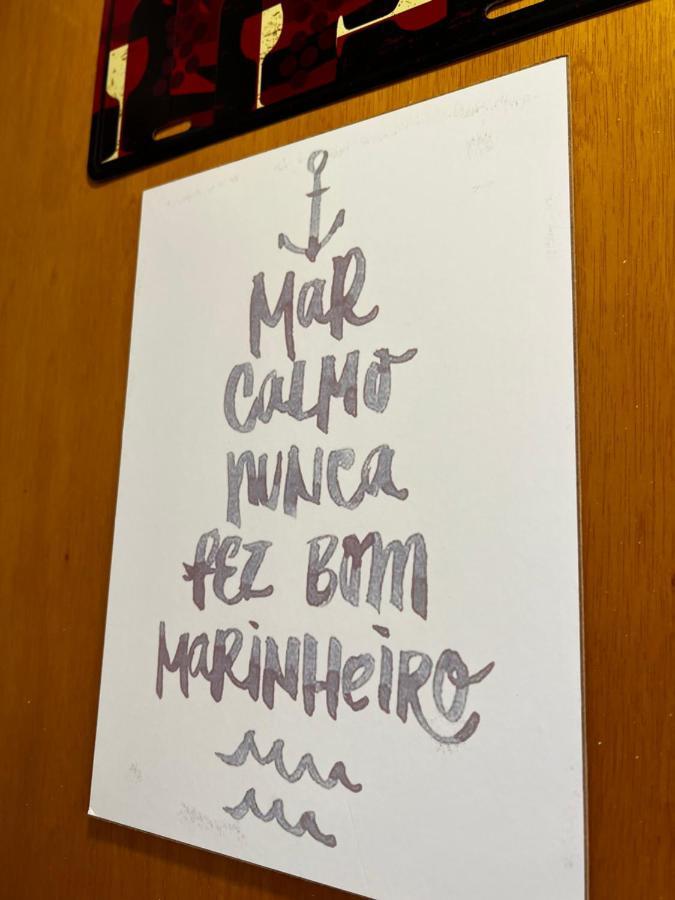 MaR
CaLMO
NUNCa
FEZ BOM
MaRiNHeiRO